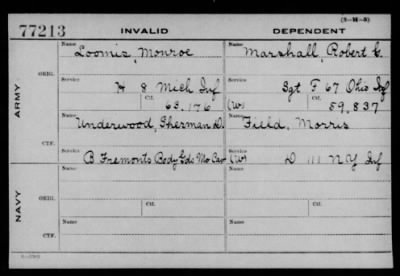 (3-M-3)
77213 INVALID DEPENDENT
Name Loomis, Monroe Name Marshall, Robert C.
ARMY
ORIG. Service H 8 Mich Inf Service Sgt F 67 Ohio Inf
Ctf. 63.176 (W) Ctf. 59.837
Name Underwood, Sherman D. Name Field, Morris
CTF. Service B Fremonts Body Gds Mo Cav Service (W) D 111 N Y Inf
NAVY
Name Name
ORIG. Service Ctf. Service Ctf.
Name Name
CTF. Service Service